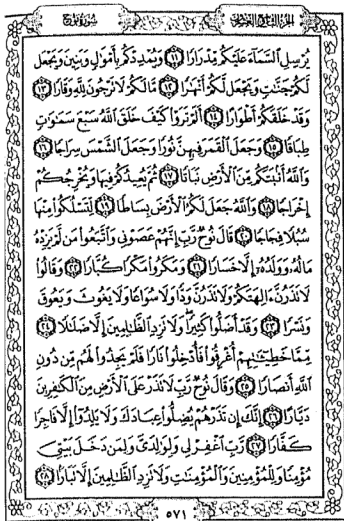 الجزء التاسع والعشرون سورة نوح
يُرْسِلِ السَّمَاءَ عَلَيْكُم مِّدْرَارًا ﴿١١﴾ وَيُمْدِدْكُم بِأَمْوَالٍ وَبَنِينَ وَيَجْعَل
لَّكُمْ جَنَّاتٍ وَيَجْعَل لَّكُمْ أَنْهَارًا ﴿١٢﴾ مَّا لَكُمْ لَا تَرْجُونَ لِلَّهِ وَقَارًا ﴿١٣﴾
وَقَدْ خَلَقَكُمْ أَطْوَارًا ﴿١٤﴾ أَلَمْ تَرَوْا كَيْفَ خَلَقَ اللَّهُ سَبْعَ سَمَاوَاتٍ
طِبَاقًا ﴿١٥﴾ وَجَعَلَ الْقَمَرَ فِيهِنَّ نُورًا وَجَعَلَ الشَّمْسَ سِرَاجًا ﴿١٦﴾
وَاللَّهُ أَنبَتَكُم مِّنَ الْأَرْضِ نَبَاتًا ﴿١٧﴾ ثُمَّ يُعِيدُكُمْ فِيهَا وَيُخْرِجُكُمْ
إِخْرَاجًا ﴿١٨﴾ وَاللَّهُ جَعَلَ لَكُمُ الْأَرْضَ بِسَاطًا ﴿١٩﴾ لِّتَسْلُكُوا مِنْهَا
سُبُلًا فِجَاجًا ﴿٢٠﴾ قَالَ نُوحٌ رَّبِّ إِنَّهُمْ عَصَوْنِي وَاتَّبَعُوا مَن لَّمْ يَزِدْهُ
مَالُهُ وَوَلَدُهُ إِلَّا خَسَارًا ﴿٢١﴾ وَمَكَرُوا مَكْرًا كُبَّارًا ﴿٢٢﴾ وَقَالُوا
لَا تَذَرُنَّ آلِهَتَكُمْ وَلَا تَذَرُنَّ وَدًّا وَلَا سُوَاعًا وَلَا يَغُوثَ وَيَعُوقَ
وَنَسْرًا ﴿٢٣﴾ وَقَدْ أَضَلُّوا كَثِيرًا وَلَا تَزِدِ الظَّالِمِينَ إِلَّا ضَلَالًا ﴿٢٤﴾
مِّمَّا خَطِيئَاتِهِمْ أُغْرِقُوا فَأُدْخِلُوا نَارًا فَلَمْ يَجِدُوا لَهُم مِّن دُونِ
اللَّهِ أَنصَارًا ﴿٢٥﴾ وَقَالَ نُوحٌ رَّبِّ لَا تَذَرْ عَلَى الْأَرْضِ مِنَ الْكَافِرِينَ
دَيَّارًا ﴿٢٦﴾ إِنَّكَ إِن تَذَرْهُمْ يُضِلُّوا عِبَادَكَ وَلَا يَلِدُوا إِلَّا فَاجِرًا
كَفَّارًا ﴿٢٧﴾ رَّبِّ اغْفِرْ لِي وَلِوَالِدَيَّ وَلِمَن دَخَلَ بَيْتِيَ
مُؤْمِنًا وَلِلْمُؤْمِنِينَ وَالْمُؤْمِنَاتِ وَلَا تَزِدِ الظَّالِمِينَ إِلَّا تَبَارًا ﴿٢٨﴾
٥٧١